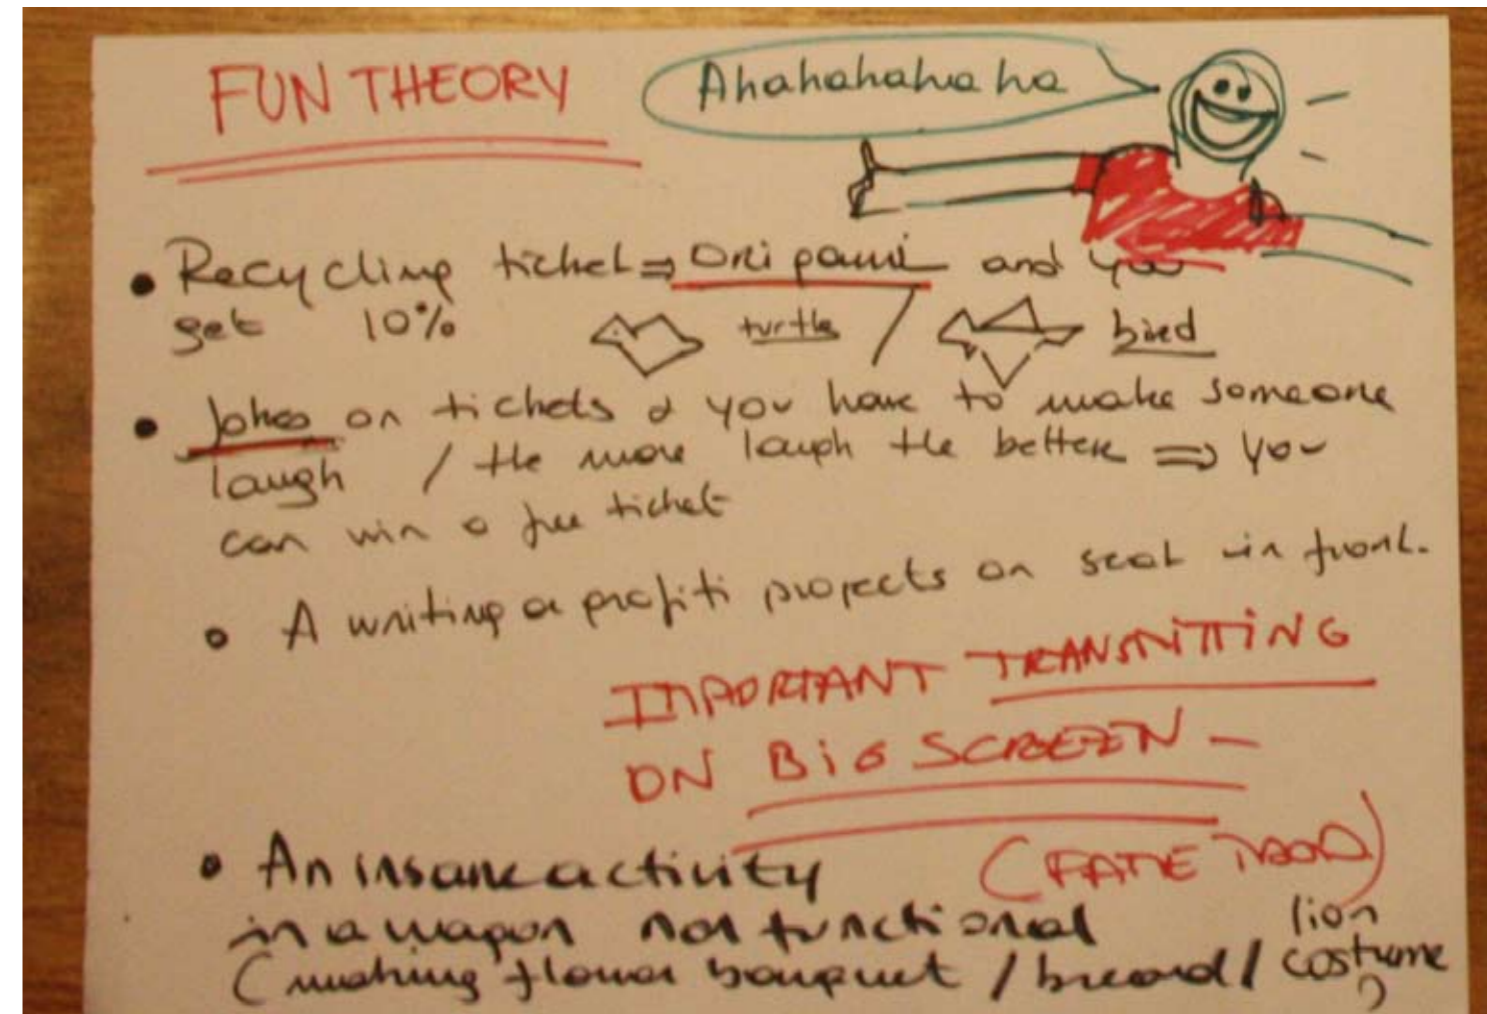 FUN THEORY
Ahahahahaha
• Recycling ticket ⇒ Origami and you
get 10% turtle / bird
• Jokes on tickets & you have to make someone
laugh / the more laugh the better ⇒ you
can win a free ticket
• A writing or grafiti projects on seat in front.
IMPORTANT TRANSMITTING
ON BIG SCREEN -
• An insane activity
in a wagon not functional
(making flower bouquet / bread / lion
costume)